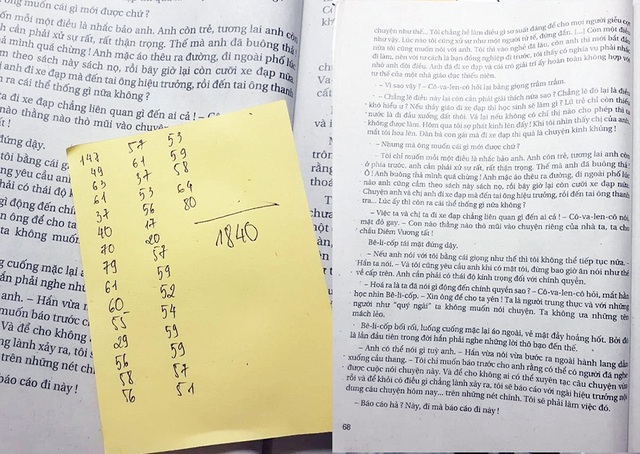 uốn mỗi một điều là nhắc bảo anh. Anh còn trẻ, tương lai anh còn
nh cần phải xử sự rất, rất thận trọng. Thế mà anh đã buông thả
hả mình quá chừng ! Anh mặc áo thêu ra đường, đi ngoài phố lúc
ầm theo sách này sách nọ, rồi bây giờ lại còn cưỡi xe đạp nữa
anh đi xe đạp mà đến tai ông hiệu trưởng, rồi đến tai ông thanh
ì ra cái thể thống gì nữa không ?
ta đi xe đạp chẳng liên quan gì đến ai cả ! – Cô-
nào thằng nào thò mũi vào chuyện
đứng dậy.
tôi bằng cái giọng
yêu cầu anh
phải có thái độ
gì động đến chính
ông để cho ta
ta không muốn
g cuống mặc lại áo
ần phải nghe như
anh. – Hắn vừa
muốn báo trước
Và để cho không
ng lành xảy ra, tôi
trên những nét chính
báo cáo đi này !
143 57 53
49 61 59
63 37 58
61 53 64
37 56 80
40 17
70 20
79 57
61 59
60 52
55 54
29 59
56 59
58 57
56 51
1840
chuyện như thế... Tôi chẳng hề làm điều gì sơ suất đáng để cho mọi người giễu cợt
như vậy. Lúc nào tôi cũng xử sự như một người tử tế, đứng đắn. [...] Còn một điều
nữa tôi cũng muốn nói với anh. Tôi thì vào nghề đã lâu, còn anh thì mới bắt đầu
đi làm, nên với tư cách là bạn đồng nghiệp đi trước, tôi thấy có nghĩa vụ phải nhắc
nhở anh đôi điều. Anh đã đi xe đạp và cái trò giải trí ấy hoàn toàn không hợp với
tư thế của một nhà giáo dục thiếu niên.
– Vì sao vậy ? – Cô-va-len-cô hỏi lại bằng giọng trầm trầm.
– Chẳng lẽ điều này lại còn cần phải giải thích nữa sao ? Chẳng lẽ đó lại là điều
khó hiểu ư ? Nếu thầy giáo đi xe đạp thì học sinh sẽ làm gì ? Lũ trẻ chỉ còn thiếu
nước là đi đầu xuống đất thôi. Và lại nếu không có chỉ thị nào cho phép thì ta
không được làm. Hôm qua tôi sợ phát kinh lên đấy ! Khi tôi nhìn thấy chị của anh,
mắt tôi hoa lên. Đàn bà con gái mà đi xe đạp thì quả là chuyện kinh khủng !
– Nhưng mà ông muốn cái gì mới được chứ ?
– Tôi chỉ muốn mỗi một điều là nhắc bảo anh. Anh còn trẻ, tương lai anh còn
ở phía trước, anh cần phải xử sự rất, rất thận trọng. Thế mà anh đã buông thả quá.
Ồ ! Anh buông thả mình quá chừng ! Anh mặc áo thêu ra đường, đi ngoài phố lúc
nào anh cũng cầm theo sách này sách nọ, rồi bây giờ lại còn cưỡi xe đạp nữa.
Chuyện anh và chị anh đi xe đạp mà đến tai ông hiệu trưởng, rồi đến tai ông thanh
tra... Lúc ấy thì còn ra cái thể thống gì nữa không ?
– Việc ta và chị ta đi xe đạp chẳng liên quan gì đến ai cả ! – Cô-va-len-cô nói,
mặt đỏ gay. – Con nào thằng nào thò mũi vào chuyện riêng của nhà ta, ta cho
chầu Diêm Vương tất !
Bê-li-cốp tái mặt đứng dậy.
– Nếu anh nói với tôi bằng cái giọng như thế thì tôi không thể tiếp tục nữa, –
Hắn ta nói. – Và tôi cũng yêu cầu anh khi có mặt tôi, đừng bao giờ ăn nói như thế
về cấp trên. Anh cần phải có thái độ kính trọng đối với chính quyền.
– Hoá ra là ta đã nói gì động đến chính quyền sao ? – Cô-va-len-cô hỏi, mắt hằn
học nhìn Bê-li-cốp. – Xin ông để cho ta yên ! Ta là người trung thực và với những
người như "quý ngài" ta không muốn nói chuyện. Ta không ưa những tên
mách lẻo.
Bê-li-cốp bối rối, luống cuống mặc lại áo ngoài, vẻ mặt đầy hoảng hốt. Bởi đó
là lần đầu tiên trong đời hắn phải nghe những lời thô bạo đến thế.
– Anh có thể nói gì tuỳ anh. – Hắn vừa nói vừa bước ra ngoài hành lang dẫn
xuống cầu thang. – Tôi chỉ muốn báo trước cho anh rằng có thể có người đã nghe
được cuộc nói chuyện này. Và để cho không ai có thể xuyên tạc câu chuyện vừa
rồi và để khỏi có điều gì chẳng lành xảy ra, tôi sẽ báo cáo với ngài hiệu trưởng nội
dung câu chuyện hôm nay... trên những nét chính. Tôi sẽ phải làm việc đó.
– Báo cáo hả ? Này, đi mà báo cáo đi này !
68